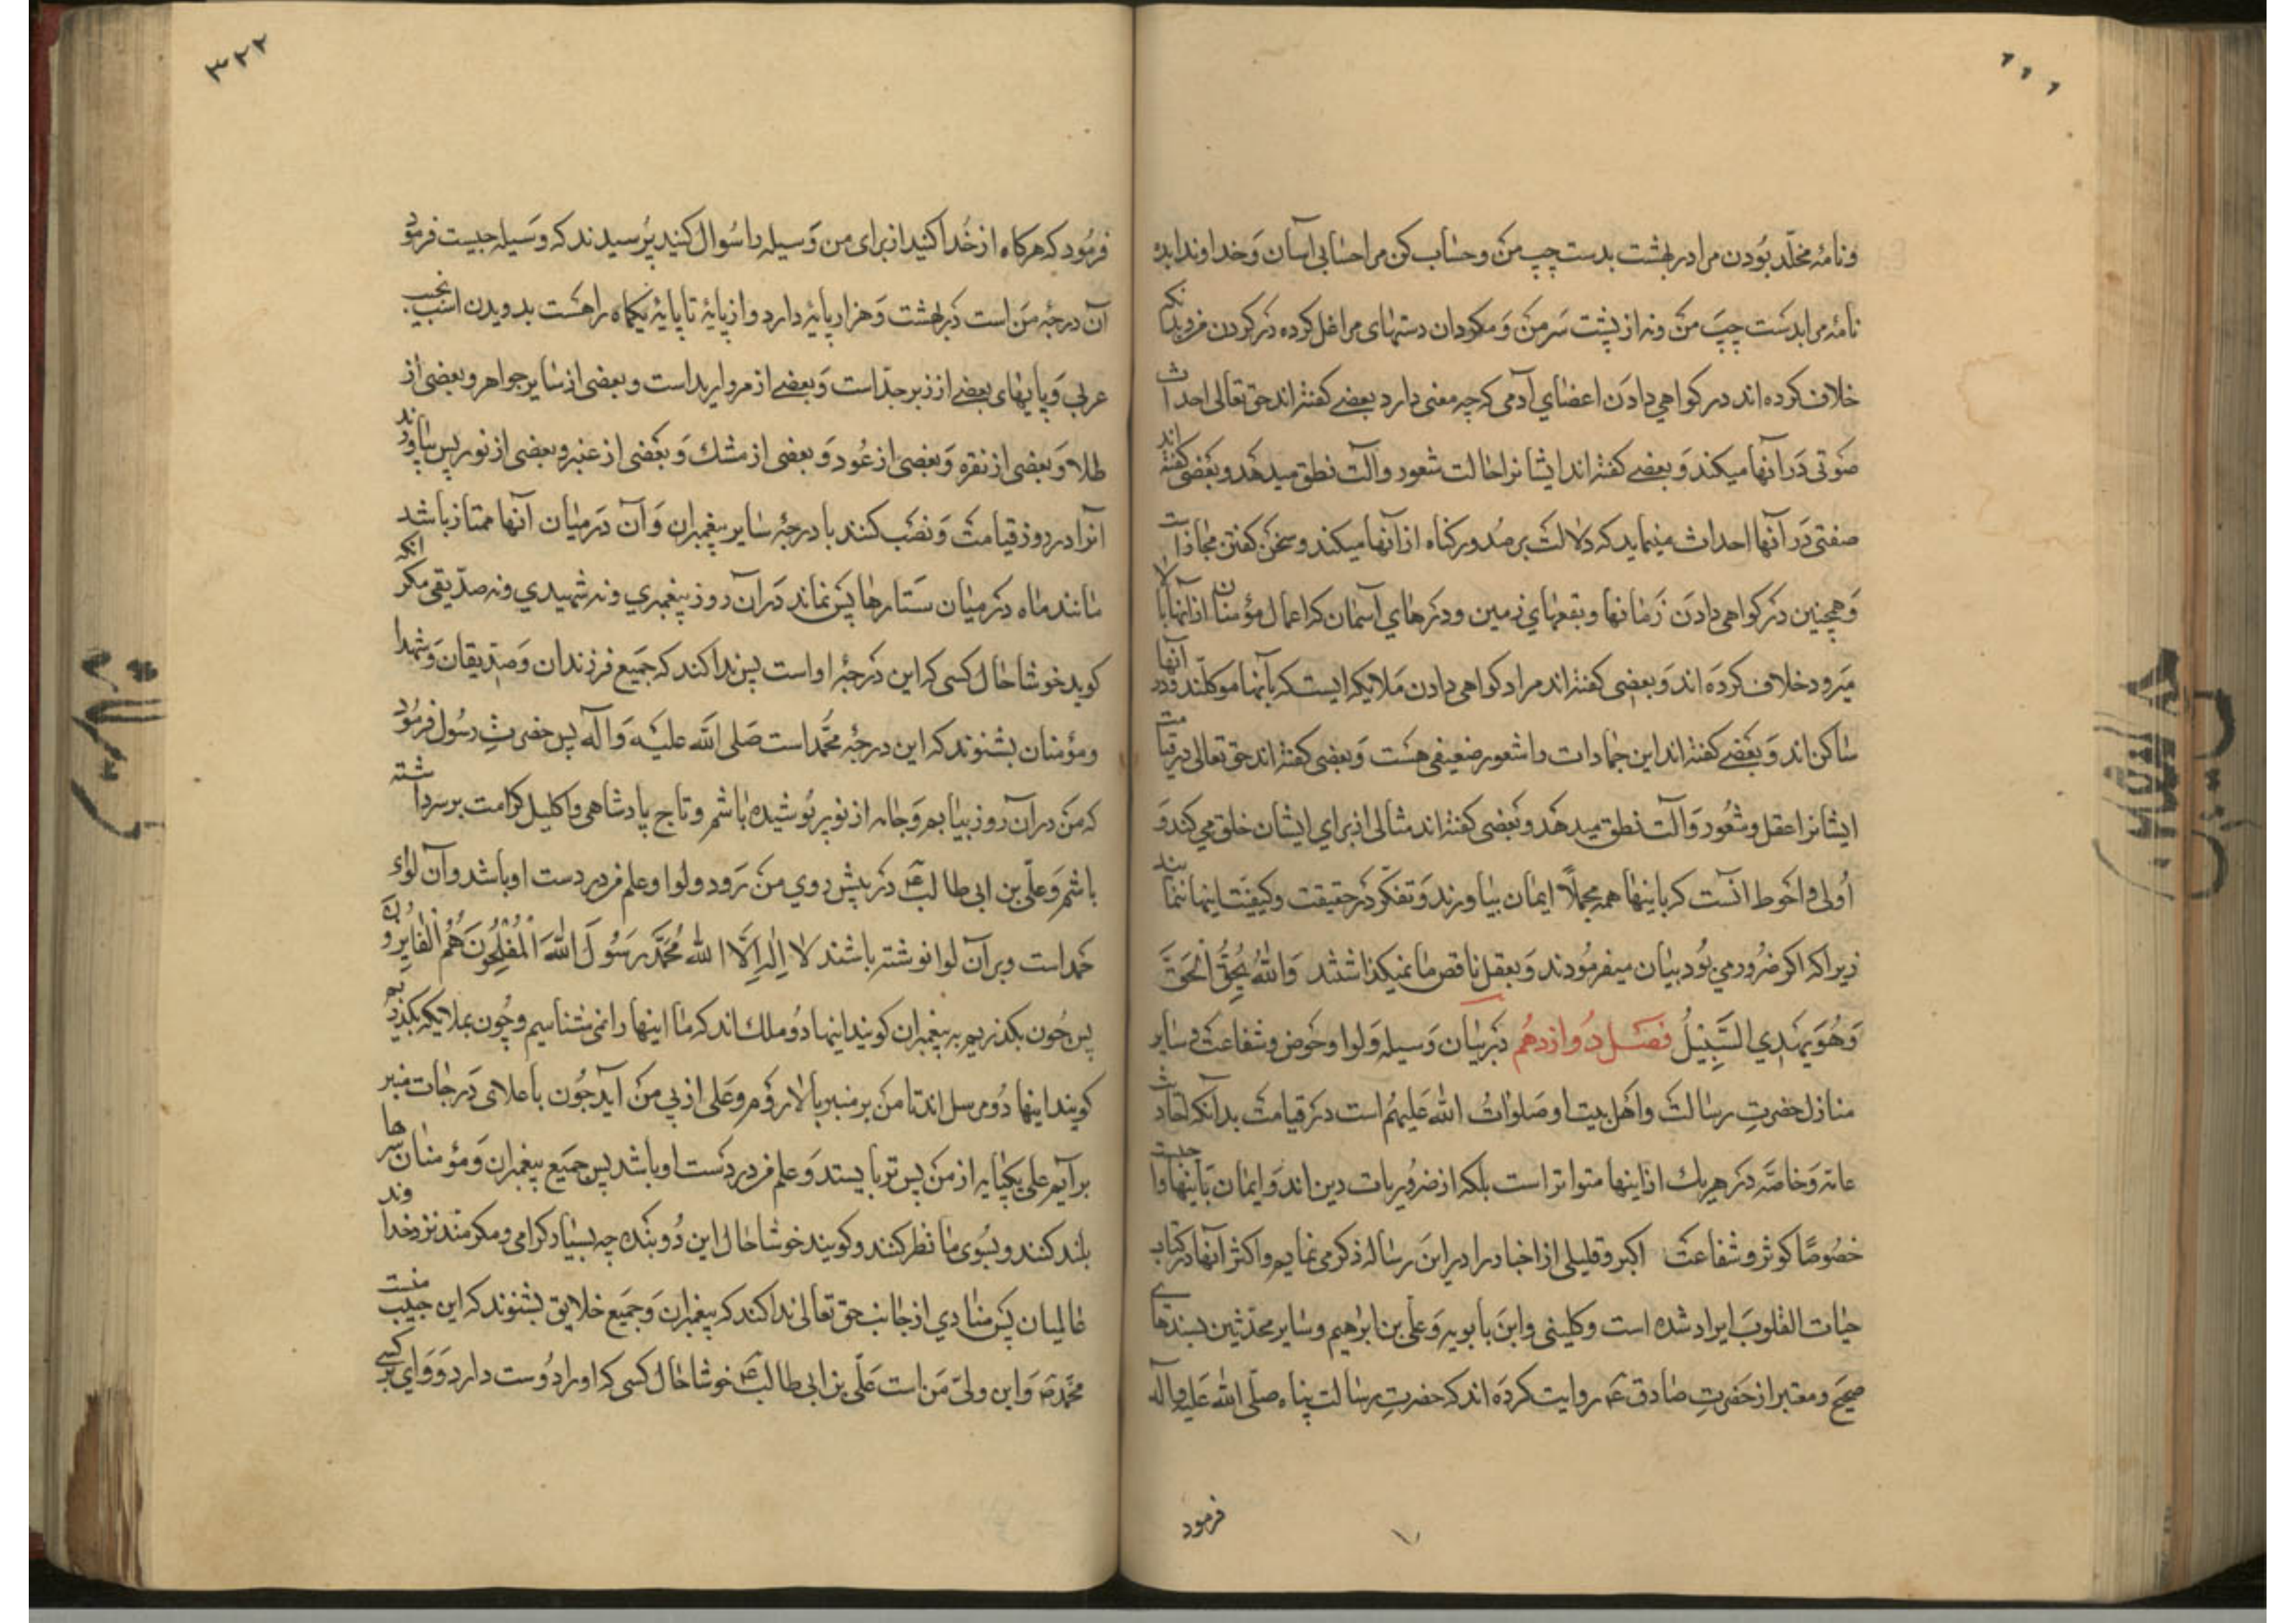 ونامۀ مخلّد بُودن مرا در بهشت بدست چپ من وحساب کن مرا حسابی آسان وَخداوندا بده
نامۀ مرا بدست چپَ من ونه از پشت سَر من وَمکردان دستهای مرا غل کرده در کردن فروبدانکه
خلاف کرده اند در کواهي دادن اعضاي آدمی که چه معنی دارد بعضے کفته اند حق تعالی احداث
صَوتی دَر آنها میکند وَبعضے کفته اند ایشانرا حالت شعور وآلت نطق میدهَد وبَعضی کفته اند
صفتی دَر آنها احداث مینماید که دلالت بر صُدور کناه از آنها میکند وسخن کفتن مجاز است
وَهمچنین در کواهی دادن زَمانها وبقعهاي زمین ودرهاي آسمان که اعمال مؤمنان از آنها بالا
میرود خلاف کردَه اند وَبعضی کفته اند مراد کواهی دادن مَلایکه ایست که بآنها موکلند ودر آنها
ساکن اند وَبعَضے کفته اند این جمادات را شعور ضعیفی هست وَبعضی کفته اند حق تعالی در قیامت
ایشانرا عقل وشعُور وَآلت نطق میدهَد وبَعضی کفته اند مثالی از براي ایشان خلق می کند وَ
اَولی واحَوط آنست که باینها همه مجملاً ایمان بیاورند وَتفکّر دَر حقیقت وکیفیّت اینها ننمایند
زیرا که اکر ضرُور می بُود بیان میفرمُودند وَبعقل ناقص ما نمیکذاشتند وَاللهُ یُحِقُّ الْحَقَّ
وَهُوَ یَهْدِي السَّبِیْلُ فصَل دُوازدهُم دَر بیان وَسیله وَلوا وحَوض وشفاعت وسایر
منازل حضرتِ رسالت واهَل بیت او صَلواتُ اللّه عَلیهُم است دَر قیامت بدآنکه احادیث
عامّه وَخاصّه دَر هر یك از اینها متواتر است بلکه از ضرُوریات دین اند وَایمان بَاینها واجبست
خصُوصًا کوثر وشفاعت اکبر وقلیلی از اخبار را در این رساله ذکر می نمایم واکثر آنها در کتاب
حیات القلوبَ ایراد شده است وکلینی وابن بابویه وَعلی بن ابرهیم وسایر محدّثین بسندهای
صحیح ومعتبر از حَضرتِ صادق ع روایت کردَه اند که حضرتِ رسالت پناه صلّی اللّه عَلیه وآله
فرمود
۳۲۲
فرمُود که هرکاه از خُدا کنید از برای من وَسیله را سُوال کنید پُرسیدند که وَسیله چیست فرمُود
آن درجۀ مَن است دَر بهشت وَهزار پایۀ دارد واز پایۀ تا پایۀ یکماه راهست بدویدن اسب نجیب
عربي وَپایهای بعضے از زبرجدّ است وَبعضے از مروارید است وبعضی از سایر جواهر وبعضی از
طلا وَبعضی از نقره وَبعضی از عُود وَبعضی از مشك وَبَعضی از عنبر وبعضی از نور پس بیاورند
آنرا در روز قیامت وَنصَب کنند با درجۀ سایر پیغمبران وَآن دَر میان آنها ممتاز باشد
مانند ماه دَر میان سَتارها پس نماند دَر آن روز پیغمبري ونه شهیدي ونه صدّیقی مکر آنکه
کوید خوشا حال کسی که این دَرجۀ او است پس ندا کند که جَمیع فرزندان وَصدّیقان وَشهدا
ومؤمنان بشنوند که این درجۀ محمّد است صَلی الله علیه وَآله پس حضرتِ رسُول فرمُود
که مَن در آن روز بیایم وَجامه از نور پُوشیده باشم وتاج پادشاهی واکلیل کرامت بر سر داشته
باشم وَعلّی بن ابی طالب ع دَر پیش روي من رَود ولوا وعلم در دست او باشد وآن لوای
حمد است وبر آن لوا نوشته باشند لا اِلٰه اِلَّا اللهُ مُحَمَّدٌ رَسُولُ اللهِ اَلْمُفْلِحُونَ هُمُ الْفَایِزُونَ
پس چُون بکذریم به پیغمبران کویند اینها دُو ملك اند که ما اینها را نمی شناسیم وچُون بملایکه بکذریم
کویند اینها دُو مرسل اند تا مَن بر منبر بالا روَم وعَلی از پی من آید چُون باعلای دَرجات منبر
برآیم علی یکپایه از من پس تر بایستد وَعلم در دَست او باشد پس جمَیع پیغمبران وَمؤمنان سرها
بلند کنند وبسُوی ما نظر کنند وکویند خوشا حال این دُو بنَده چه بسیار کرامی ومکرمند نزد خداوند
عالمیان پس منادي از جانب حق تعالی ندا کند که پیغمبران وَجمَیع خلایق بشنوند که این حبیب منست
محمّد ص وَاین ولیّ مَن است عَلّی بن ابی طالب ع خوشا حال کسی که او را دُوست دارد وَوَاي بر کسی